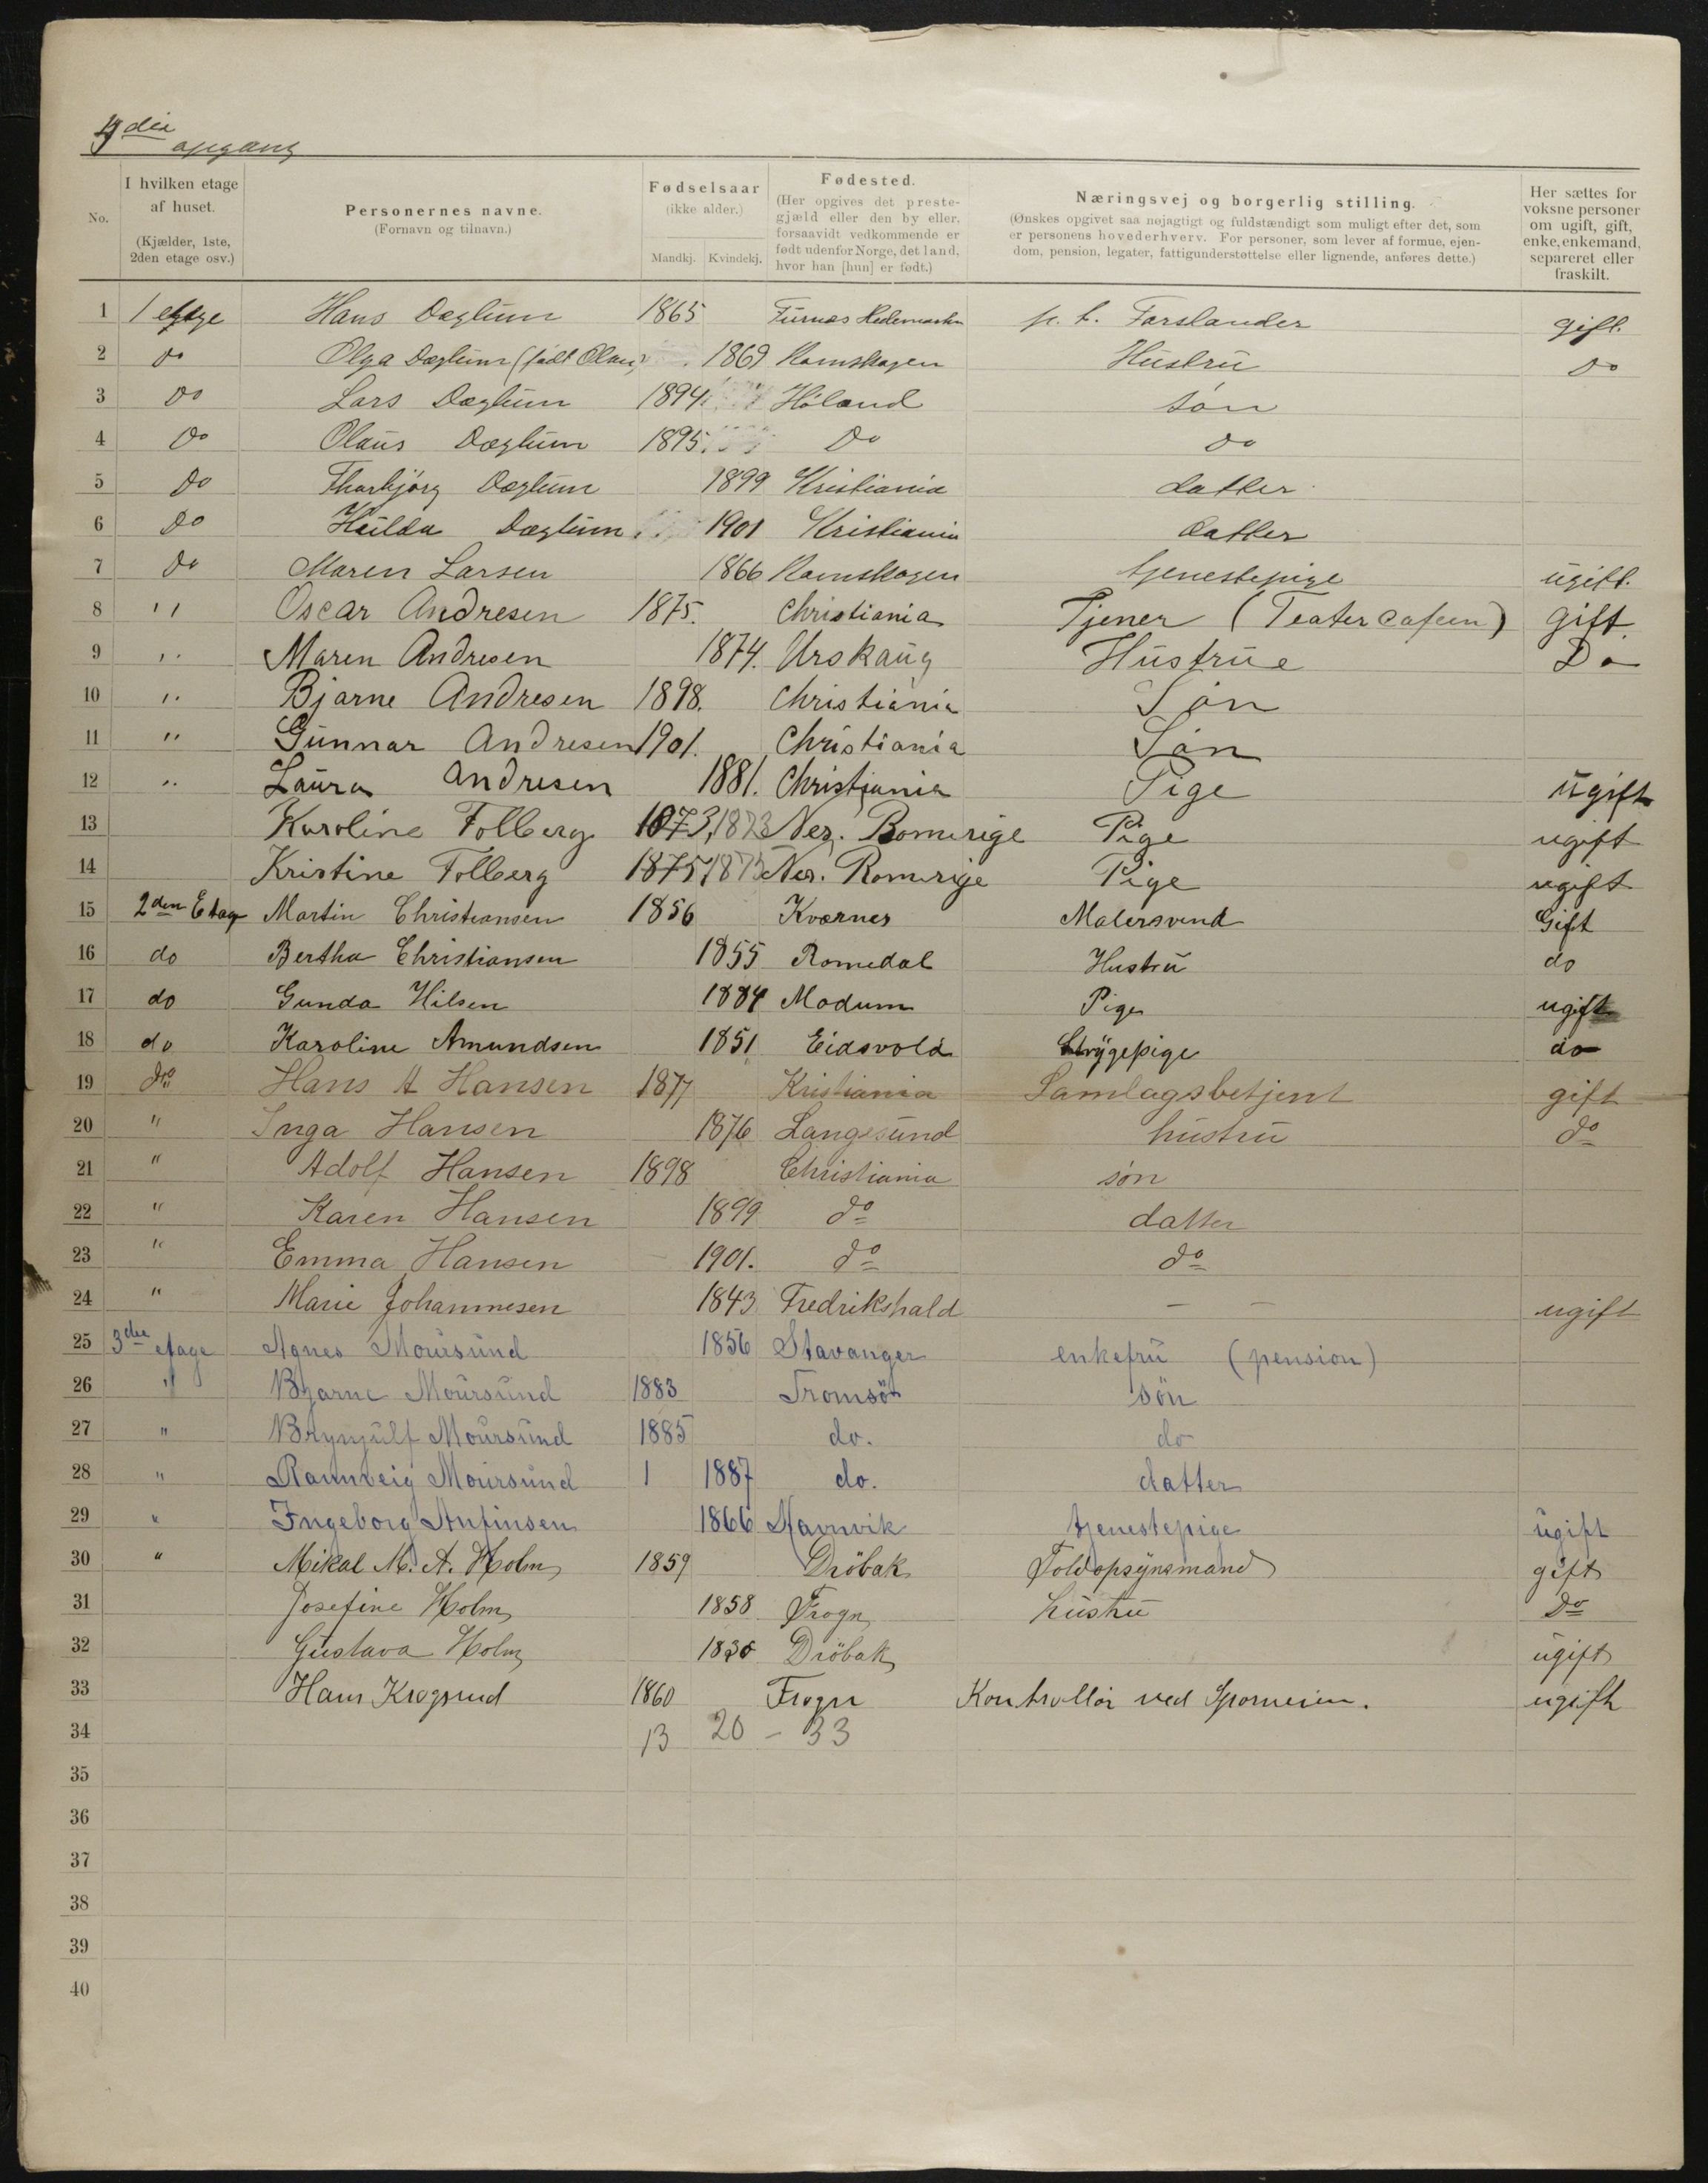 opgang
No.
I hvilken etage af huset. (Kjælder, 1ste, 2den etage osv.)
Personernes navne. (Fornavn og tilnavn.)
Fødselsaar (ikke alder.) Mandkj. Kvindekj.
Fødested. (Her opgives det prestegjæld eller den by eller, forsaavidt vedkommende er født udenfor Norge, det land, hvor han [hun] er født.)
Næringsvej og borgerlig stilling. (Ønskes opgivet saa nøjagtigt og fuldstændigt som muligt efter det, som er personens hovederhverv. For personer, som lever af formue, ejendom, pension, legater, fattigunderstøttelse eller lignende, anføres dette.)
Her sættes for voksne personer om ugift, gift, enke, enkemand, separeret eller fraskilt.
1 1 etage Hans Dæglum 1865 Furnæs Hedemarken gift.
2 Do Olga Dæglum (født Olsen) 1869 Hustru Do
3 Do Lars Dæglum 1894 Høland søn
4 Do Olaus Dæglum 1895 Do do
5 Do Thorbjørg Dæglum 1899 Kristiania datter
6 Do Hulda Dæglum 1901 Kristiania datter
7 Do Maren Larsen 1866 tjenestepige ugift.
8 " Oscar Andresen 1875. Christiania Tjener (Teater Cafeen) gift
9 " Maren Andresen 1874. Urskaug Hustrue Do
10 " Bjarne Andresen 1898. Christiania Søn
11 " Gunnar Andresen 1901. Christiania Søn
12 " Laura Andresen 1881. Christiania Pige ugift
13 Karoline Folberg 1873, 1873 Ner. Romerige Pige ugift
14 Kristine Folberg 1875, 1875 Ner. Romerige Pige ugift
15 2den Etage Martin Christiansen 1856 Kværnes Malersvend Gift
16 do Bertha Christiansen 1855 Romedal Hustru do
17 do Gunda Hilsen 1884 Modum Pige ugift
18 do Karoline Amundsen 1851 Eidsvold Strygepige do
19 do Hans A Hansen 1877 Kristiania Samlagsbetjent gift
20 " Inga Hansen 1876 Langesund hustru do
21 " Adolf Hansen 1898 Christiania søn
22 " Karen Hansen 1899 do datter
23 " Emma Hansen 1901. do do
24 " Marie Johannesen 1843 Fredrikshald — — ugift
25 3die etage Agnes Moursund 1856 Stavanger enkefru (pension)
26 " Bjarne Moursund 1883 Tromsö sön
27 " Brynjulf Moursund 1885 do. do
28 " Rannveig Moursund 1 1887 do. datter
29 " Ingeborg Anfinsen 1866 Havnvik tjenestepige ugift
30 " Mikal M. A. Holm 1859 Dröbak Toldopsynsmand gift
31 Josefine Holm 1858 Frogn hustru Do
32 Gustava Holm Dröbak ugift
33 Hans Krogsrud 1860 Frogn Kontrollør ved Sporveien. ugift
34 13 20 – 33
35
36
37
38
39
40